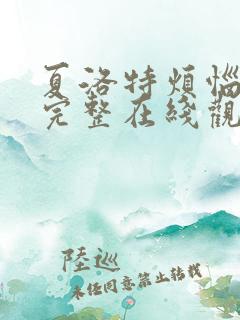 夏洛特煩惱
完整在綫觀
陸巡
未經同意禁止轉載